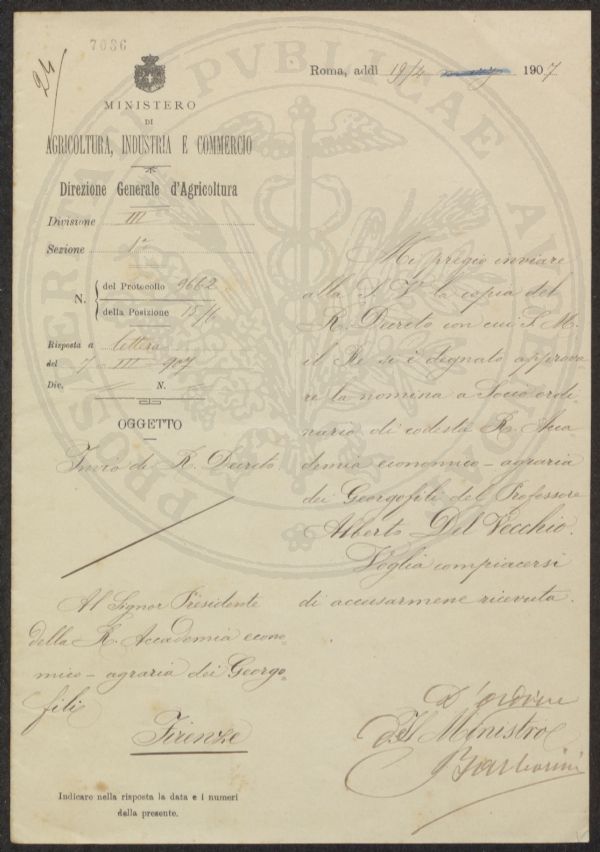 7036
24
Roma, addì 19/4 1907
MINISTERO
DI
AGRICOLTURA, INDUSTRIA E COMMERCIO
Direzione Generale d'Agricoltura
Divisione III
Sezione 1ª
N. del Protocollo 9662
della Posizione 15/1
Risposta a lettera
del 7 - III - 907
Div. N.
OGGETTO
Invio di R. Decreto
Al Signor Presidente
della R. Accademia econo-
mico-agraria dei Georgo-
fili
Firenze
Indicare nella risposta la data e i numeri
della presente.
Mi pregio inviare
alla S. V. la copia del
R. Decreto con cui S. M.
il Re si è degnato approva-
re la nomina a Socio ordi-
nario di codesta R. Acca-
demia economico-agraria
dei Georgofili del Professore
Alberto Del Vecchio.
Voglia compiacersi
di accusarmene ricevuta.
D'ordine
Il Ministro
PROSPERITATI PVBLICAE AVGENDAE